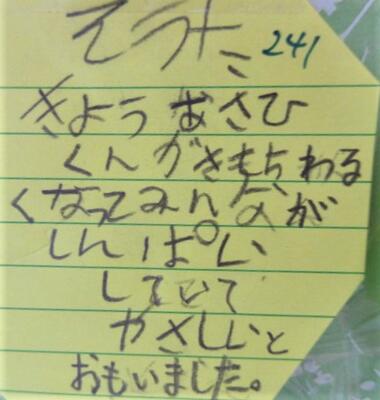 そうた 241
きょうあさひ
くんがきもちわる
くなってみんなが
しんぱい
していて
やさしいと
おもいました。